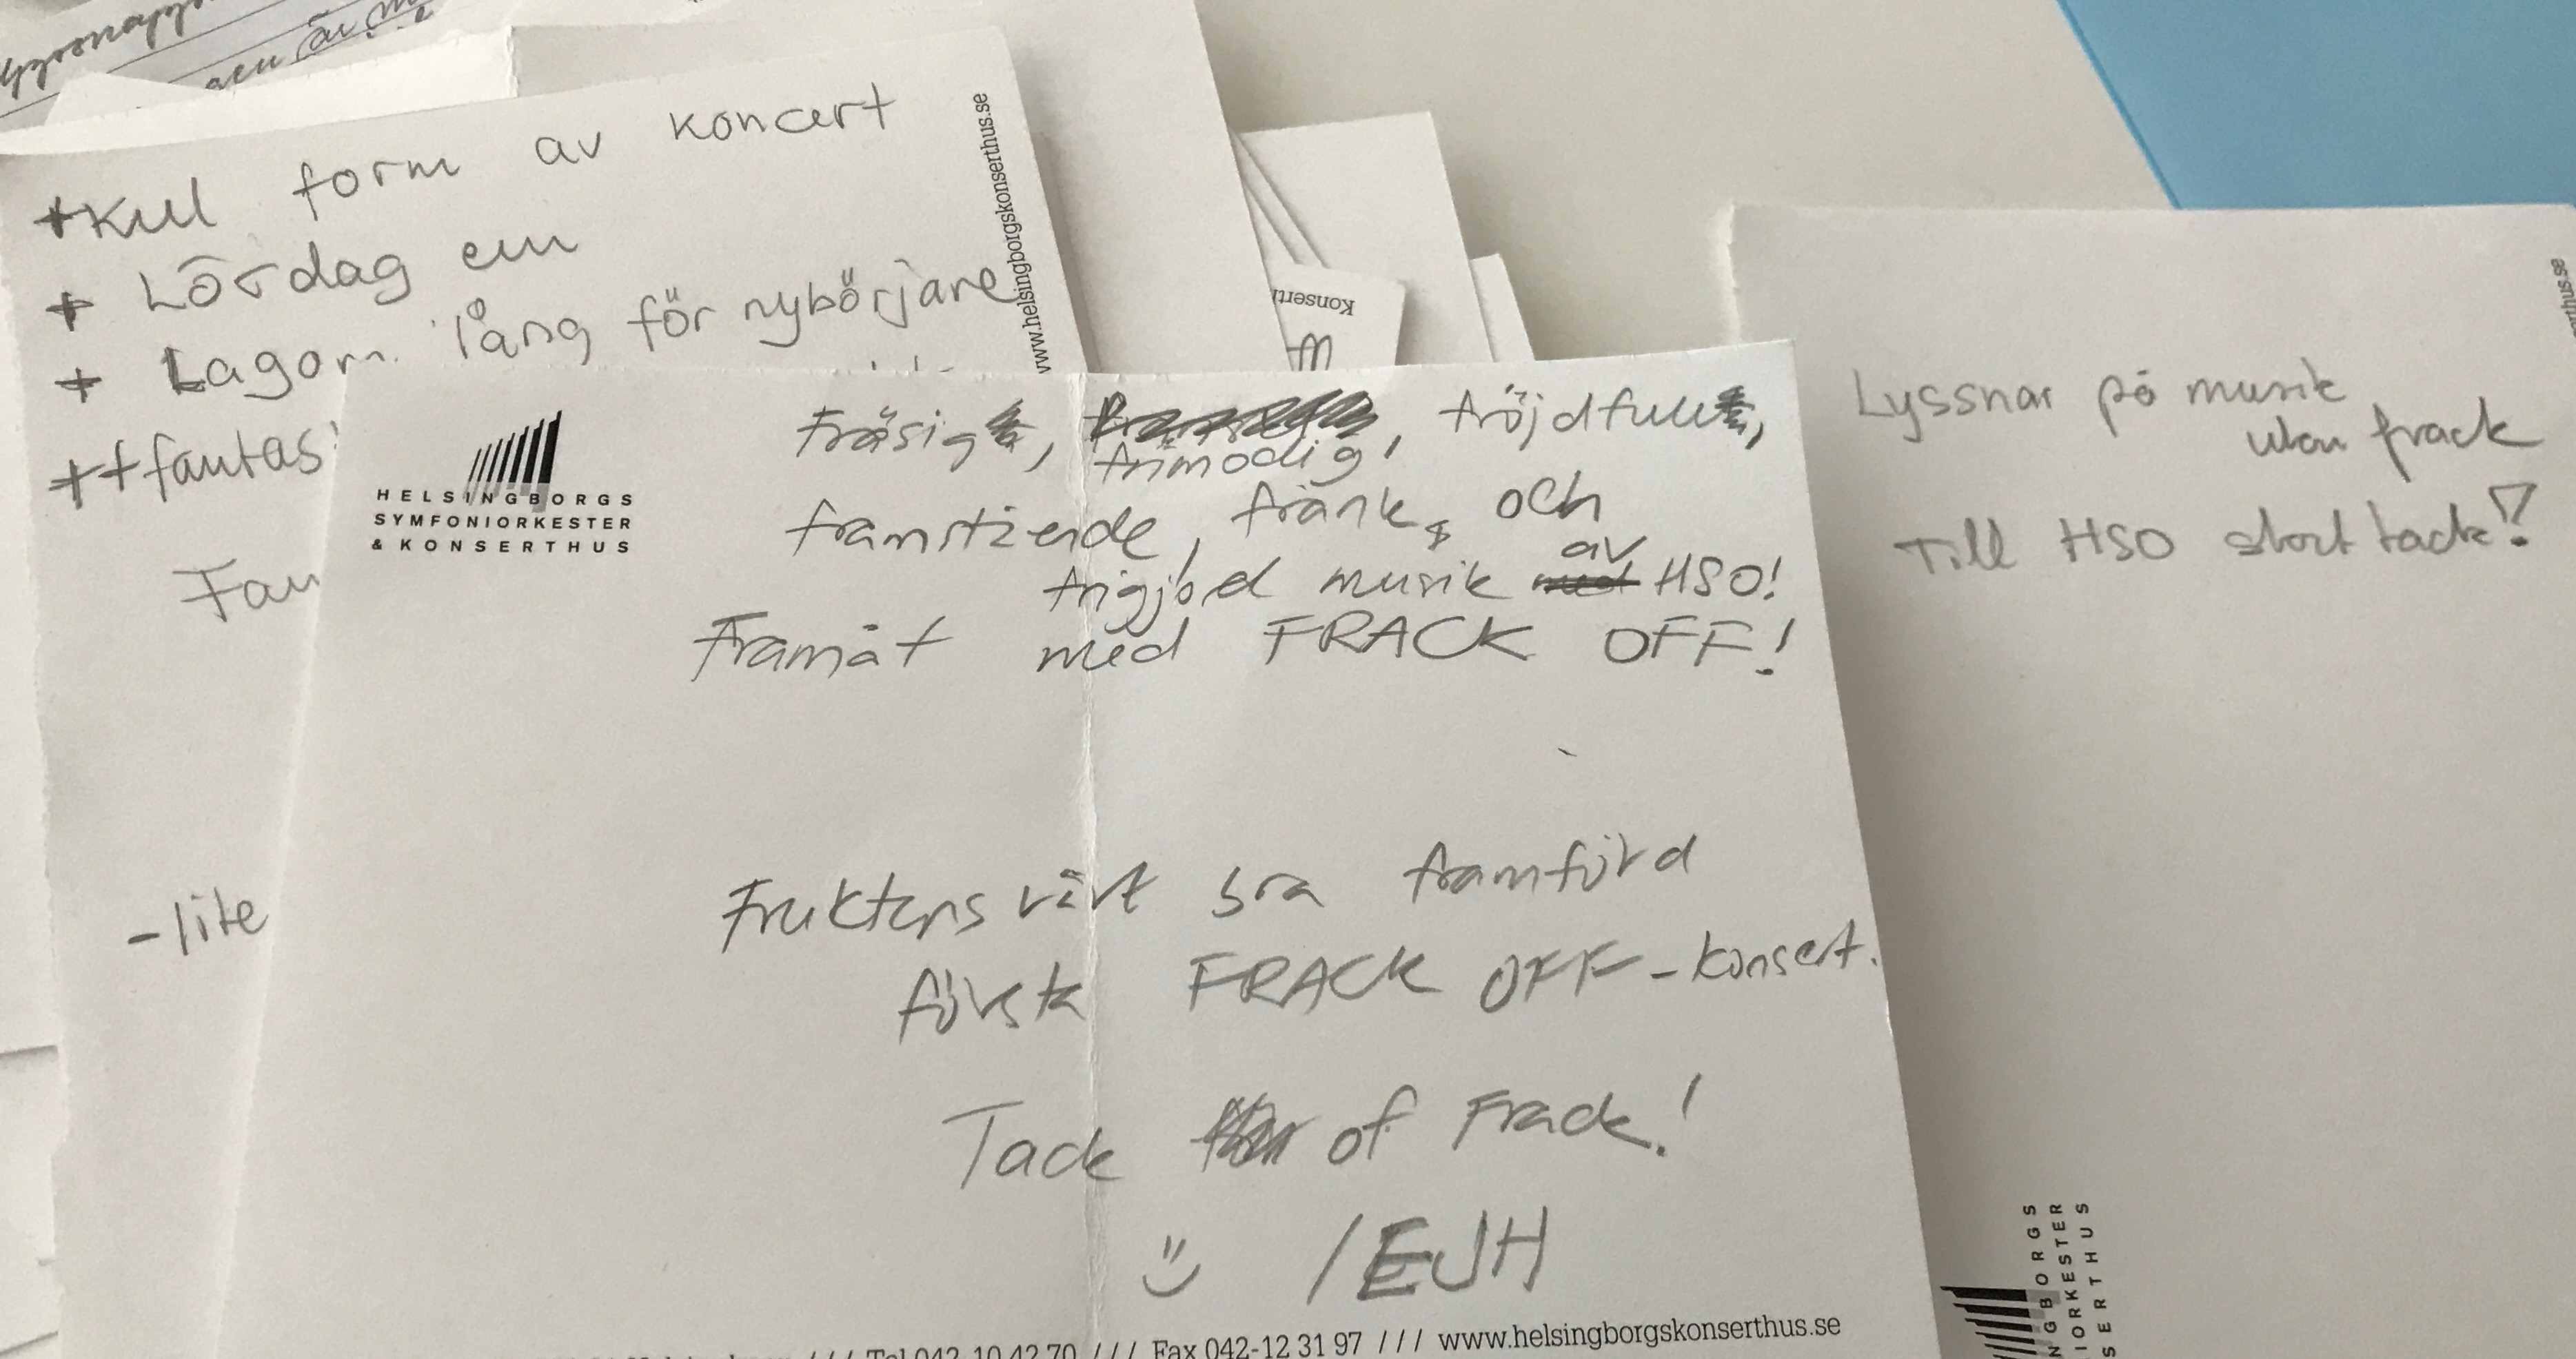 är
+Kul form av koncert
+ Lördag em
+ Lagom lång för nybörjare
++fantas
Fan
-lite
www.helsingborgskonserthus.se
Konsert
HELSINGBORGS
SYMFONIORKESTER
& KONSERTHUS
Fräsig, frimodig, fröjdfull,
framstående, fränk, och
frigjord musik av HSO!
Framåt med FRACK OFF!
Fruktansvärt bra framförd
första FRACK OFF-konsert.
Tack of Frack!
/EJH
Tel 042-10 42 70 /// Fax 042-12 31 97 /// www.helsingborgskonserthus.se
Lyssnar på musik
utan frack
Till HSO stort tack!
erthus.se
NGBORGS
IORKESTER
SERTHUS